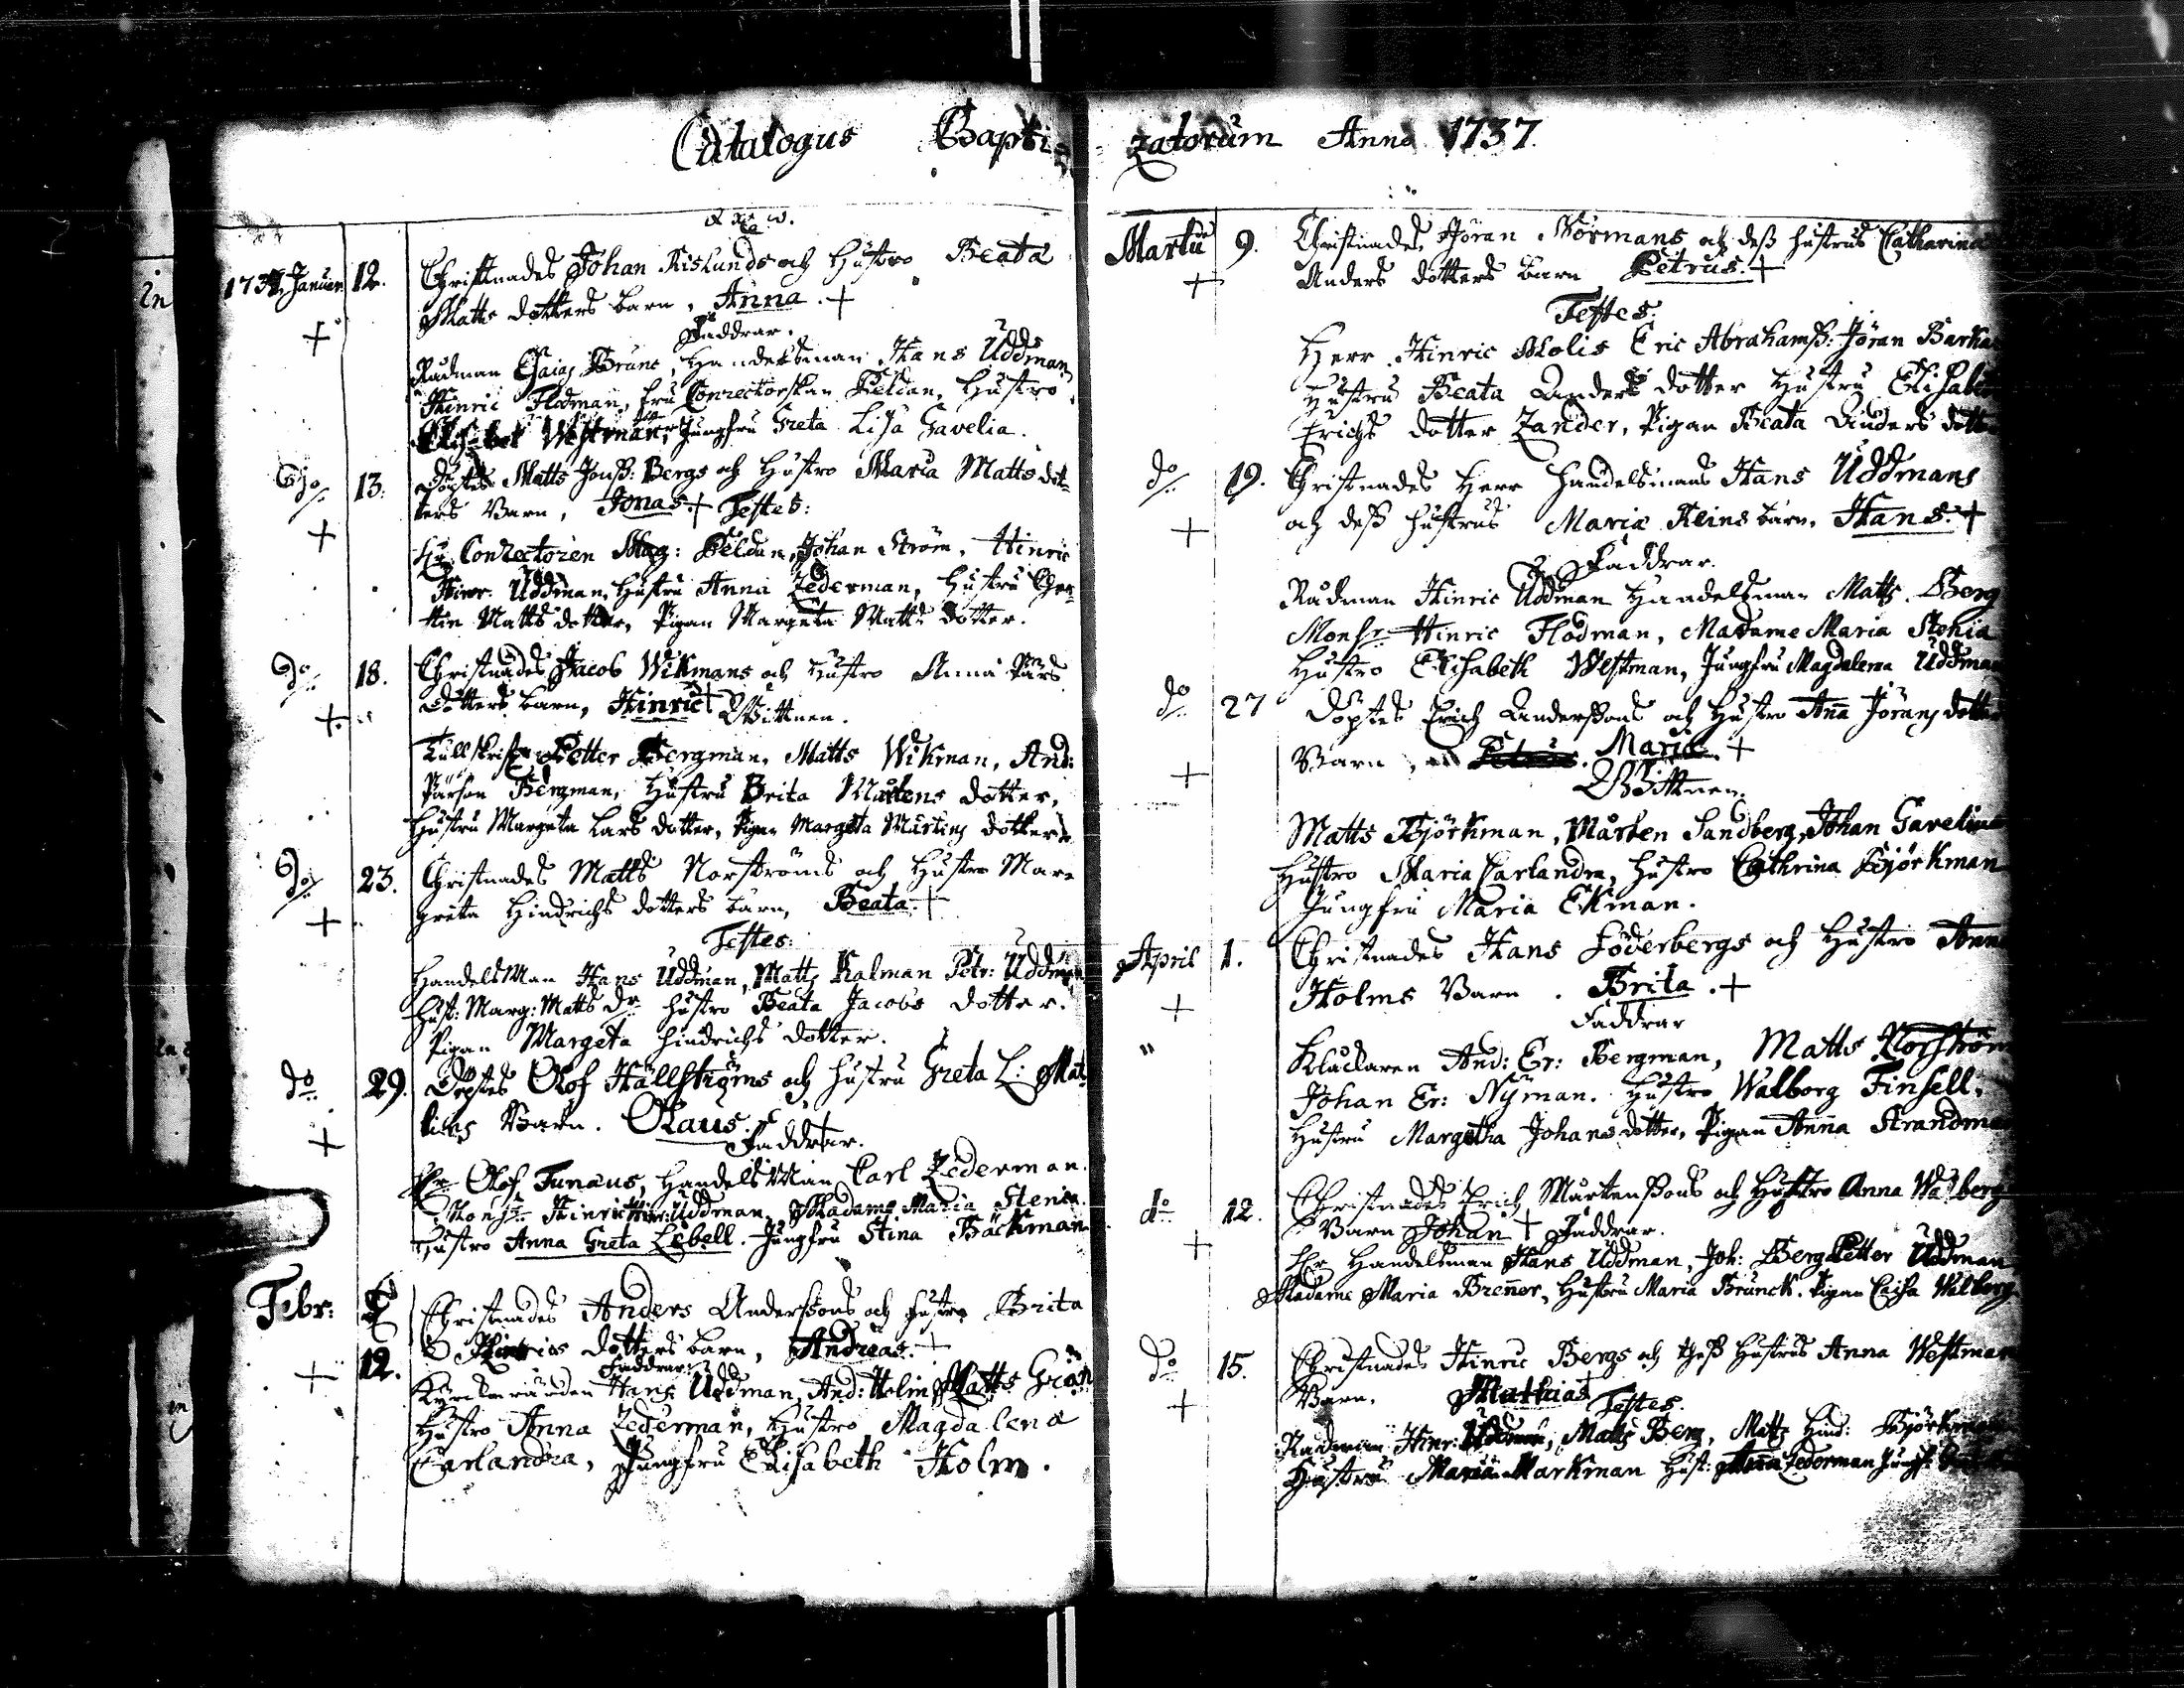 Catalogus Bapti=
1737. Januar. 12. Christnades Johan Rislunds och Hustro Beata
Matts dotters barn, Anna. +
+ Faddrar.
Rådman Esaias Brunc, Handelsman Hans Uddman,
Hinric Flodman, Fru Conrectorskan Peldan, Hustro
Westman, Jungfru Greta Lisa Gavelia.
Do 13. Döptes Matts Jonss: Bergs och Hustro Maria Matts dot=
ters Barn, Jonas + Testes:
+ Hr Conrectoren Mag: Peldan, Johan Ström, Hinric
Hinr: Uddman, Hustru Anna Zederman, Hustru Cher=
stin Matts dotter, Pigan Margeta Matts dotter.
Do 18. Christnades Jacob Wikmans och Hustro Anna Pärs
+ dotters barn, Hinric + Wittnen.
Tullskrif. Petter Bergman, Matts Wikman, And:
Pärson Bergman, Hustru Brita Mårtens dotter,
Hustru Margeta Lars dotter, Pigan Margeta Mårtins dotter
Do 23. Christnades Matts Norströms och Hustro Mar=
+ greta Hindrichs dotters barn, Beata. +
Testes:
HandelsMan Hans Uddman, Matts Kalman Petr: Uddman
Hust: Marg: Matts dr Hustro Beata Jacobs dotter.
Pigan Margeta Hindrichs dotter.
do 29. Döptes Olof Hällströms och Hustru Greta L: Mat
+ Barn. Olaus. +
Faddrar.
Hr Olof Tunæus, HandelsMan Carl Zederman.
Monsr Hinric Hinr: Uddman, Madame Maria Stenia.
Hustro Anna Greta Lebell. Jungfru Stina Bäckman
Febr: Christnades Anders Anderssons och Hustro Brita
Hinrics dotters barn, Andreas. +
+ 12. Faddrar:
Kyrckovärden Hans Uddman, And: Holm Matts Grön
Hustro Anna Zederman, Hustro Magdalena
Carlandra, Jungfru Elisabeth Holm.
zatorum Anno 1737.
Martii 9. Christnades Jöran Normans och dess hustrus Catharina
+ Anders dotters barn Petrus. +
Testes:
Herr Hinric Molis Eric Abrahamss: Jöran Barka
Hustru Beata Anders dotter Hustru Elisabe
Erichs dotter Zander, Pigan Beata Anders dotter
do 19. Christnades Herr Handelsmans Hans Uddmans
+ och dess hustrus Maria Reins barn, Hans. +
Faddrar.
Rådman Hinric Uddman Handelsman Matts Berg
Monsr Hinric Flodman, Madame Maria Stenia
Hustro Elisabeth Westman, Jungfru Magdalena Uddman
do 27 Döptes Erich Anderssons och Hustro Anna Jörans dotters
+ Barn, Petrus. Maria. +
Wittnen:
Matts Björkman, Mårten Sandberg, Johan Gavelin
Hustro Maria Carlandra, Hustro Cathrina Björkman
Jungfru Maria Ekman.
April 1. Christnades Hans Söderbergs och Hustro Anna
+ Holms Barn. Brita. +
Faddrar
Klåckaren And: Er: Bergman, Matts Norström
Johan Er: Nyman. Hustro Walborg Finsell,
Hustru Margetha Johans dotter, Pigan Anna Strandma
do 12. Christnades Erich Mårtenssons och Hustro Anna Walberg
+ Barn Johan + Faddrar.
Hr Handelsman Hans Uddman, Joh: Berg Petter Uddman
Madame Maria Brenner, Hustru Maria Brunck. Pigan Caisa Walborg
do 15. Christnades Hinric Bergs och thess Hustrus Anna Westman
+ Barn. Mathias + Testes.
Rådman Hinr: Uddman, Matts Berg, Matts Hind: Björkman
Hustru Maria Markman Hust: Anna Zederman Jungf: